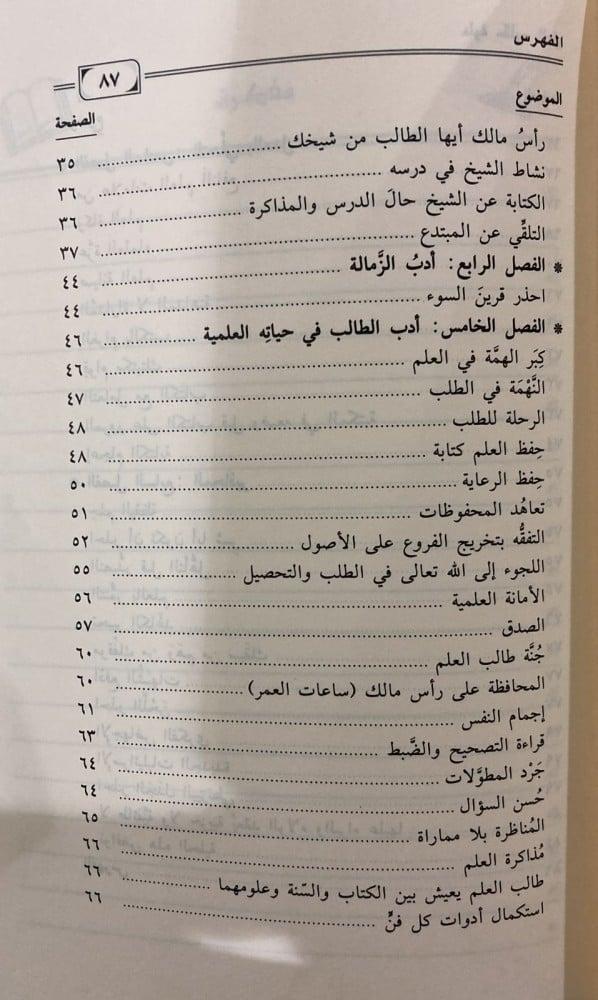 الفهرس
٨٧
الموضوع الصفحة
رأسُ مالك أيها الطالب من شيخك ٣٥
نشاط الشيخ في درسه ٣٦
الكتابة عن الشيخ حالَ الدرس والمذاكرة ٣٦
التلقِّي عن المبتدع ٣٧
* الفصل الرابع: أدبُ الزَّمالة ٤٤
احذر قرينَ السوء ٤٤
* الفصل الخامس: أدب الطالب في حياتِه العلمية ٤٦
كِبَر الهمَّة في العلم ٤٦
النَّهْمَة في الطلب ٤٧
الرحلة للطلب ٤٨
حِفظ العلم كتابة ٤٨
حِفظ الرعاية ٥٠
تعاهُد المحفوظات ٥١
التفقُّه بتخريج الفروع على الأصول ٥٢
اللجوء إلى الله تعالى في الطلب والتحصيل ٥٥
الأمانة العلمية ٥٦
الصدق ٥٧
جُنَّة طالب العلم ٦٠
المحافظة على رأس مالك (ساعات العمر) ٦٠
إجمام النفس ٦١
قراءة التصحيح والضَّبط ٦٣
جَرْد المطوَّلات ٦٤
حُسن السؤال ٦٤
المُناظرة بلا مماراة ٦٥
مُذاكرة العلم ٦٦
طالب العلم يعيش بين الكتاب والسّنة وعلومهما ٦٦
استكمال أدوات كل فنٍّ ٦٦